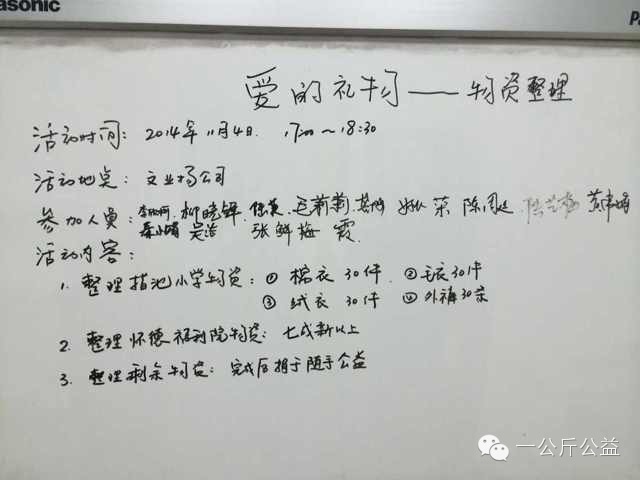 asonic
Pa
爱的礼物——物资整理
活动时间：2014年11月4日. 17:00～18:30
活动地点：文业扬公司
参加人员：柳晓锋 陈
吴浩 张鲜梅 霞
活动内容：
1. 整理 小学物资：① 棉衣 30件 ② 毛衣 30件
③ 绒衣 30件 ④ 外裤 30条
2. 整理怀德福利院物资：七成新以上
3. 整理剩余物资：完成后捐于随手公益
一公斤公益